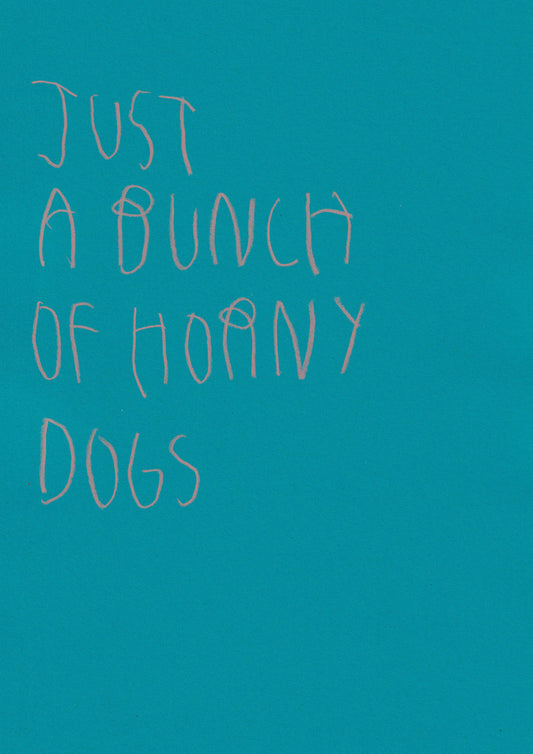 JUST
A BUNCH
OF HORNY
DOGS